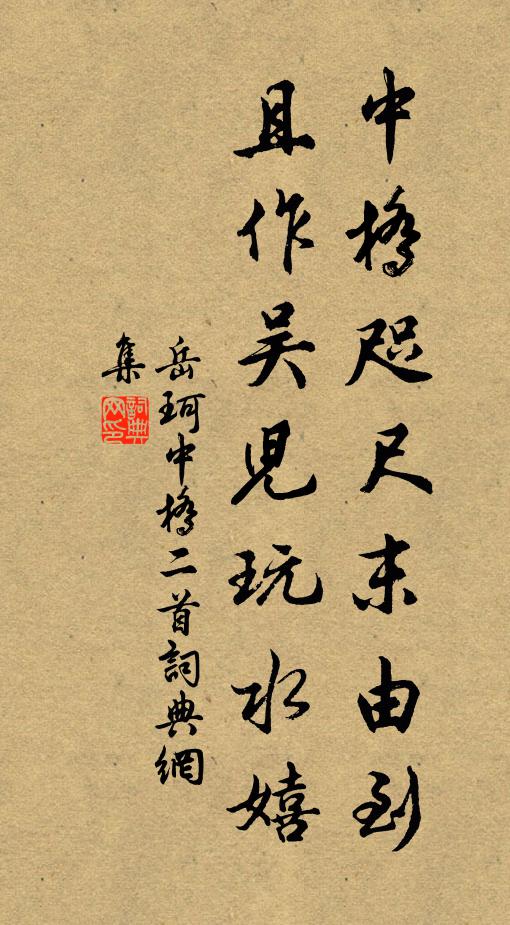 中橋咫尺末由到
且作吴兒玩水嬉
岳珂中橋二首詞典網
集
詞典網印